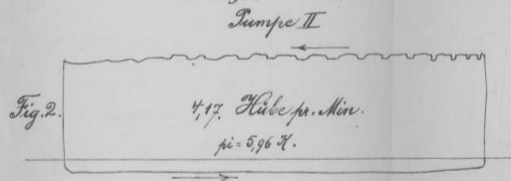 Pumpe II
Fig. 2.
4,17. Hübe pr. Min.
pi = 5,96 K.